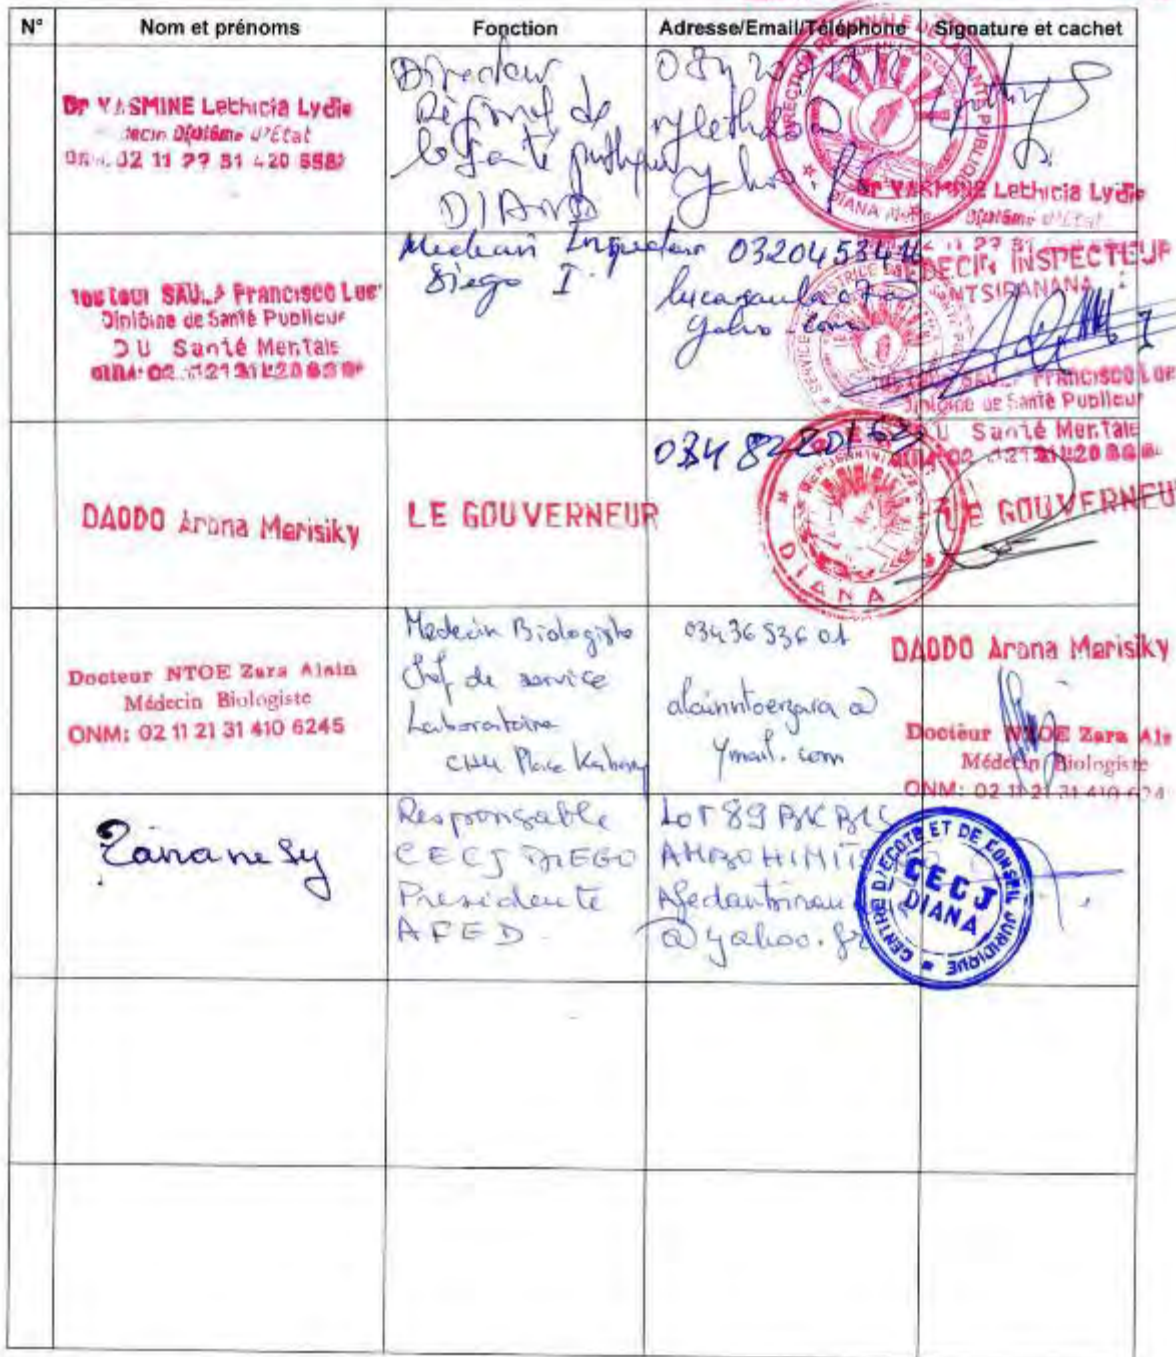 N° Nom et prénoms Fonction Adresse/Email/Téléphone Signature et cachet
Dr YASMINE Lethicia Lydie
Diplômé d'Etat
Directeur
Régional de
la Santé publique
DIANA
DIRECTION REGIONALE DE LA SANTE PUBLIQUE
DIANA
Dr YASMINE Lethicia Lydie
Diplômé d'Etat
SAULA Francisco Luc
Diplôme de Santé Publique
DU Santé Mentale
Medecin Inspecteur
Diego I.
0320453414
yahoo.com
MEDECIN INSPECTEUR
ANTSIRANANA
SAULA Francisco Luc
Diplôme de Santé Publique
DU Santé Mentale
DAODO Arona Marisiky
LE GOUVERNEUR
DIANA
LE GOUVERNEUR
DAODO Arona Marisiky
Docteur NTOE Zara Alain
Médecin Biologiste
ONM: 02 11 21 31 410 6245
Medecin Biologiste
Chef de service
Laboratoire
CHU Place Kabary
034 36 536 01
alainntoezara @
ymail.com
Docteur NTOE Zara Ala
Médecin Biologiste
ONM: 02 11 21 31 410 624
Zananesy
Responsable
CECJ DIEGO
Presidente
AFED
Lot 89
@yahoo.fr
CENTRE D'ECOTE ET DE CONSEIL JURIDIQUE
CECJ
DIANA